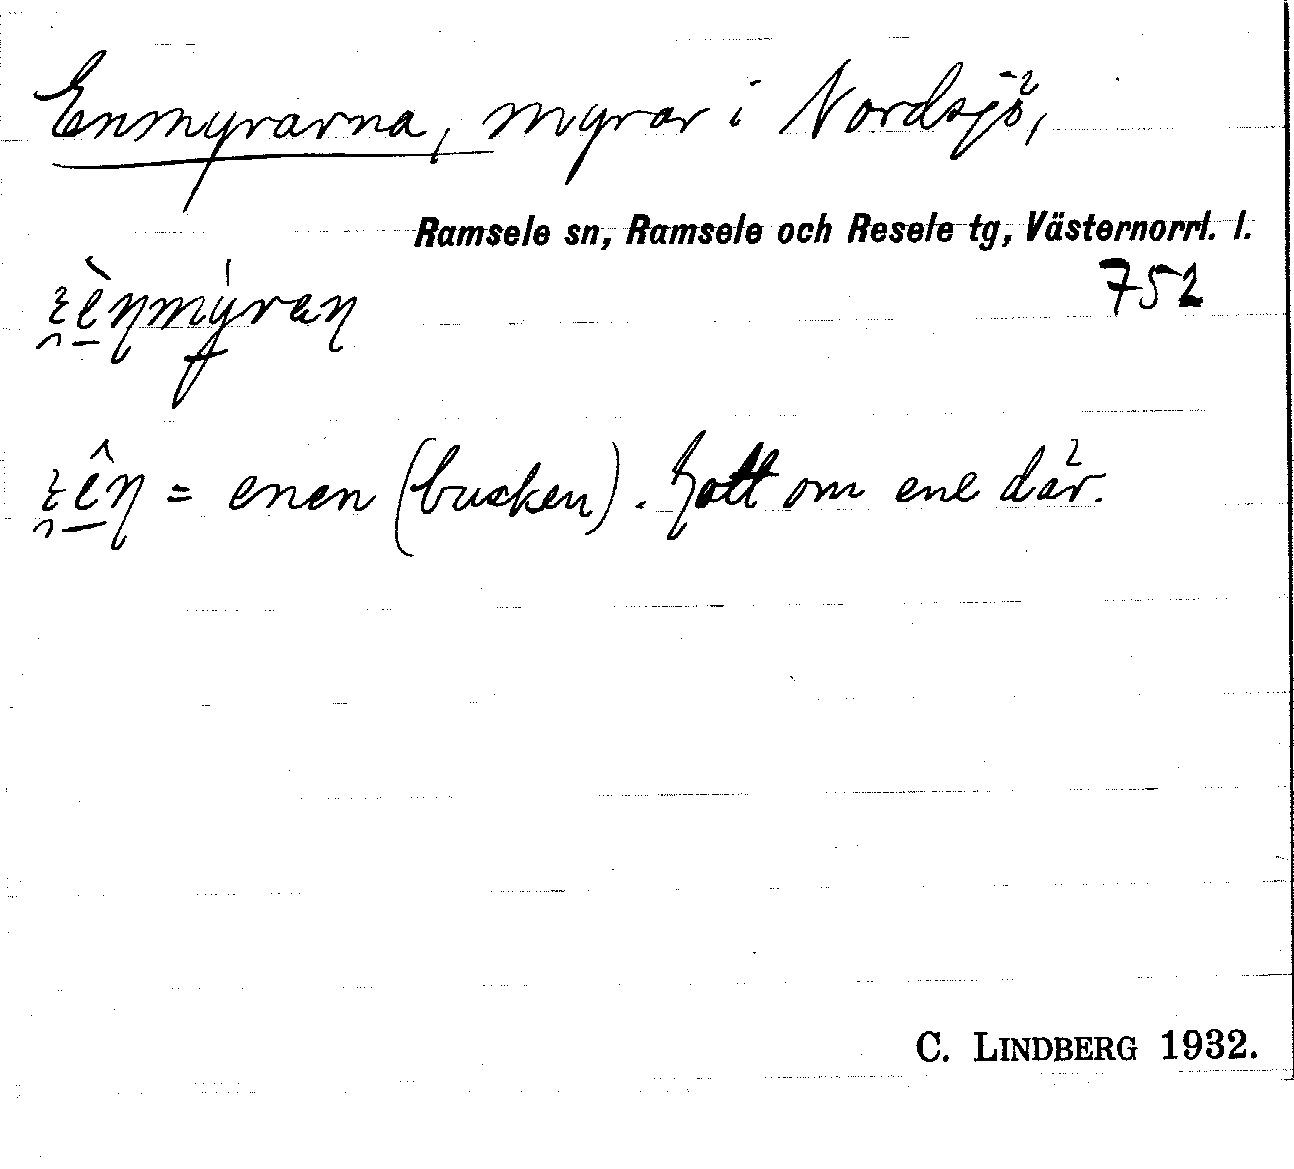 Enmyrarna, myrar i Nordsjö,
Ramsele sn, Ramsele och Resele tg, Västernorrl. l.
752
= enen (busken). Gott om ene där.
C. LINDBERG 1932.